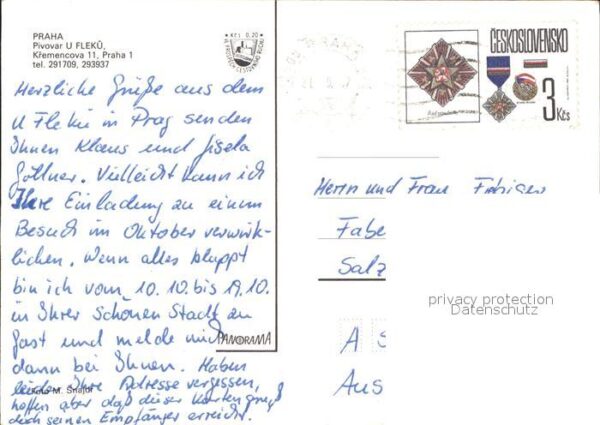 PRAHA
Pivovar U FLEKŮ,
Křemencova 11, Praha 1
tel. 291709, 293937
Kčs 0,20
Herzliche Grüße aus dem
U Fleku in Prag senden
Ihnen Klaus und Gisela
Göllner. Vielleicht kann ich
Ihre Einladung zu einem
Besuch im Oktober verwirk-
lichen. Wenn alles klappt
bin ich vom 10.10. bis 19.10.
in Ihrer schönen Stadt zu
Gast und melde mich
dann bei Ihnen. Haben
leider Ihre Adresse vergessen,
hoffen aber daß dieser Kartengruß
doch seinen Empfänger erreicht.
PANORAMA
ČESKOSLOVENSKO
3 Kčs
Herrn und Frau
Fabe
Salz
privacy protection
Datenschutz
A S
Aus